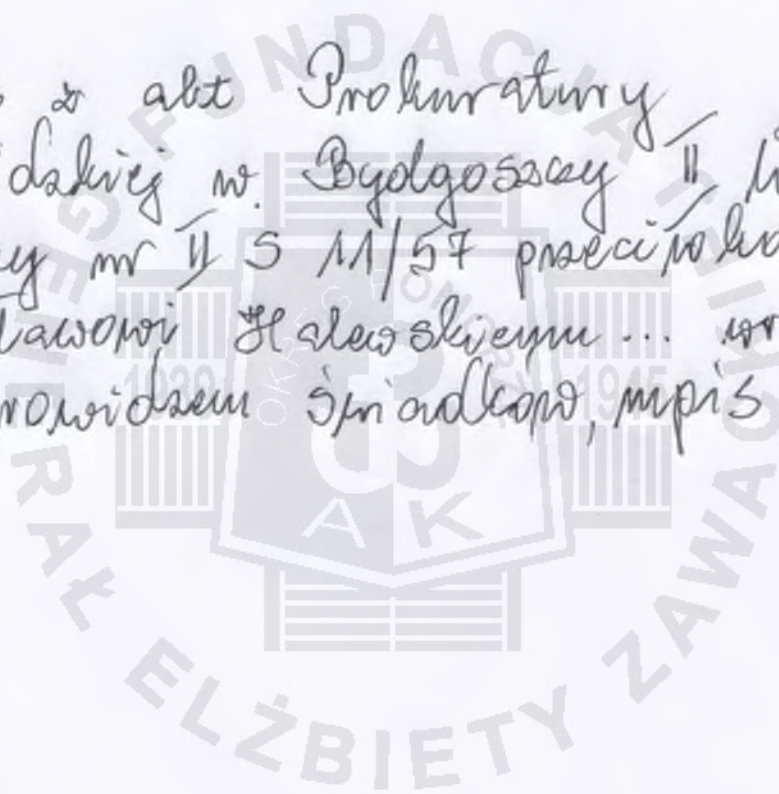 z akt Prokuratury
dzkiej w. Bydgoszczy II
y nr II S 11/57 przeciwko
ławowi Halewskiemu ... wr
rowidzem świadków, mpis
FUNDACJA GENERAŁ ELŻBIETY ZAWACKIEJ
OKRĘG POMORZE
1939 1945
AK